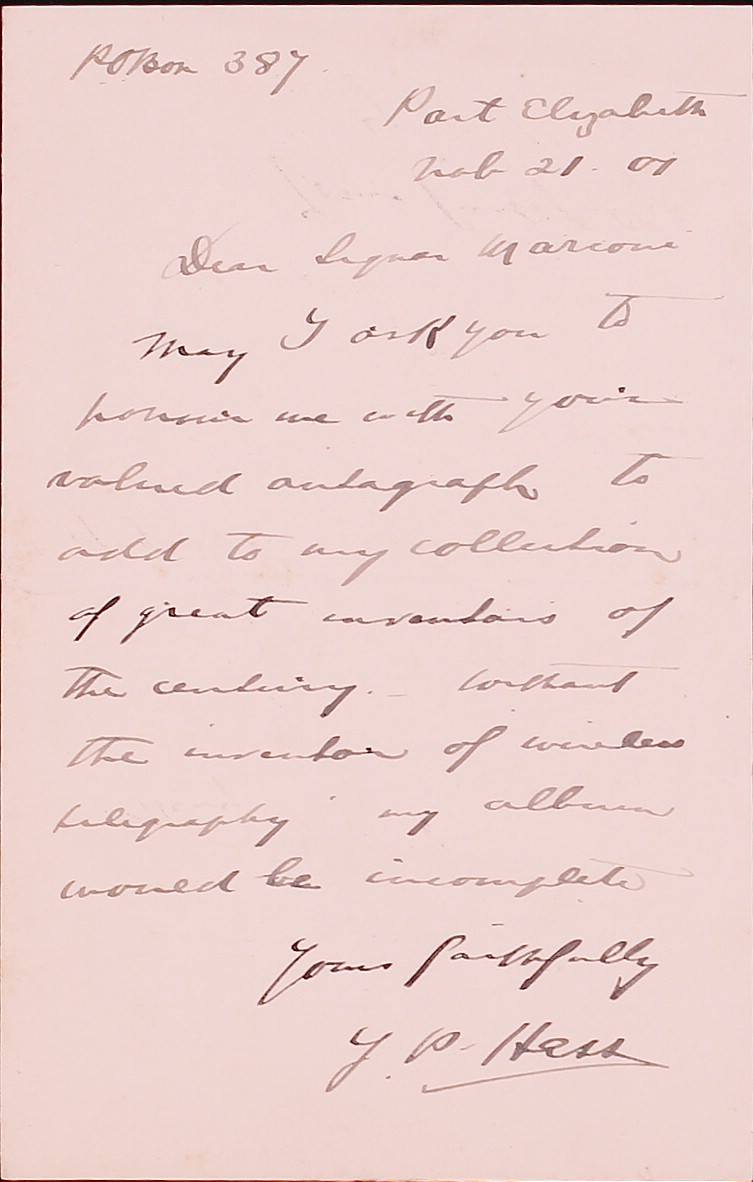 PO Box 387.
Port Elizabeth
Feb 21. 01
Dear Signor Marconi
May I ask you to
honour me with your
valued autograph to
add to my collection
of great inventors of
the century. - Without
the inventor of wireless
telegraphy my album
would be incomplete
Yours faithfully
P. Hess